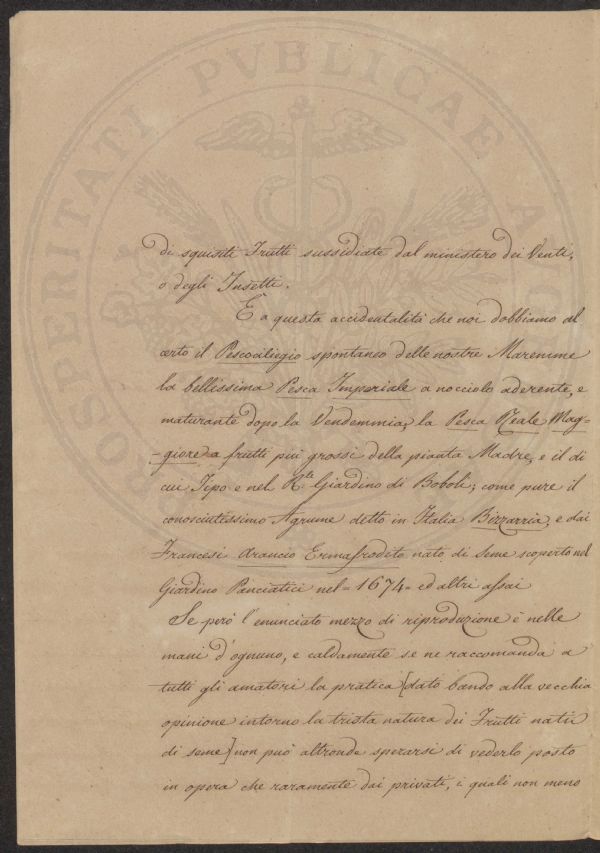 PROSPERITATI PVBLICAE A
di squisiti Frutti sussidiate dal ministero dei Venti,
o degli Insetti.
È a questa accidentalità che noi dobbiamo al
certo il Pescociliegio spontaneo delle nostre Maremme
la bellissima Pesca Imperiale a nocciolo aderente, e
maturante dopo la Vendemmia, la Pesca Reale Mag-
-giore a frutti più grossi della pianta Madre, e il di
cui Tipo e nel R.le Giardino di Boboli; come pure il
conosciutissimo Agrume detto in Italia Bizzarria, e dai
Francesi Arancio Ermafrodito nato di seme scoperto nel
Giardino Panciatici nel = 1674 = ed altri assai
Se però l'enunciato mezzo di riproduzione è nelle
mani d'ognuno, e caldamente se ne raccomanda a
tutti gli amatori la pratica [dato bando alla vecchia
opinione intorno la trista natura dei Frutti nati
di seme] non può altronde sperarsi di vederlo posto
in opera che raramente dai privati, i quali non meno